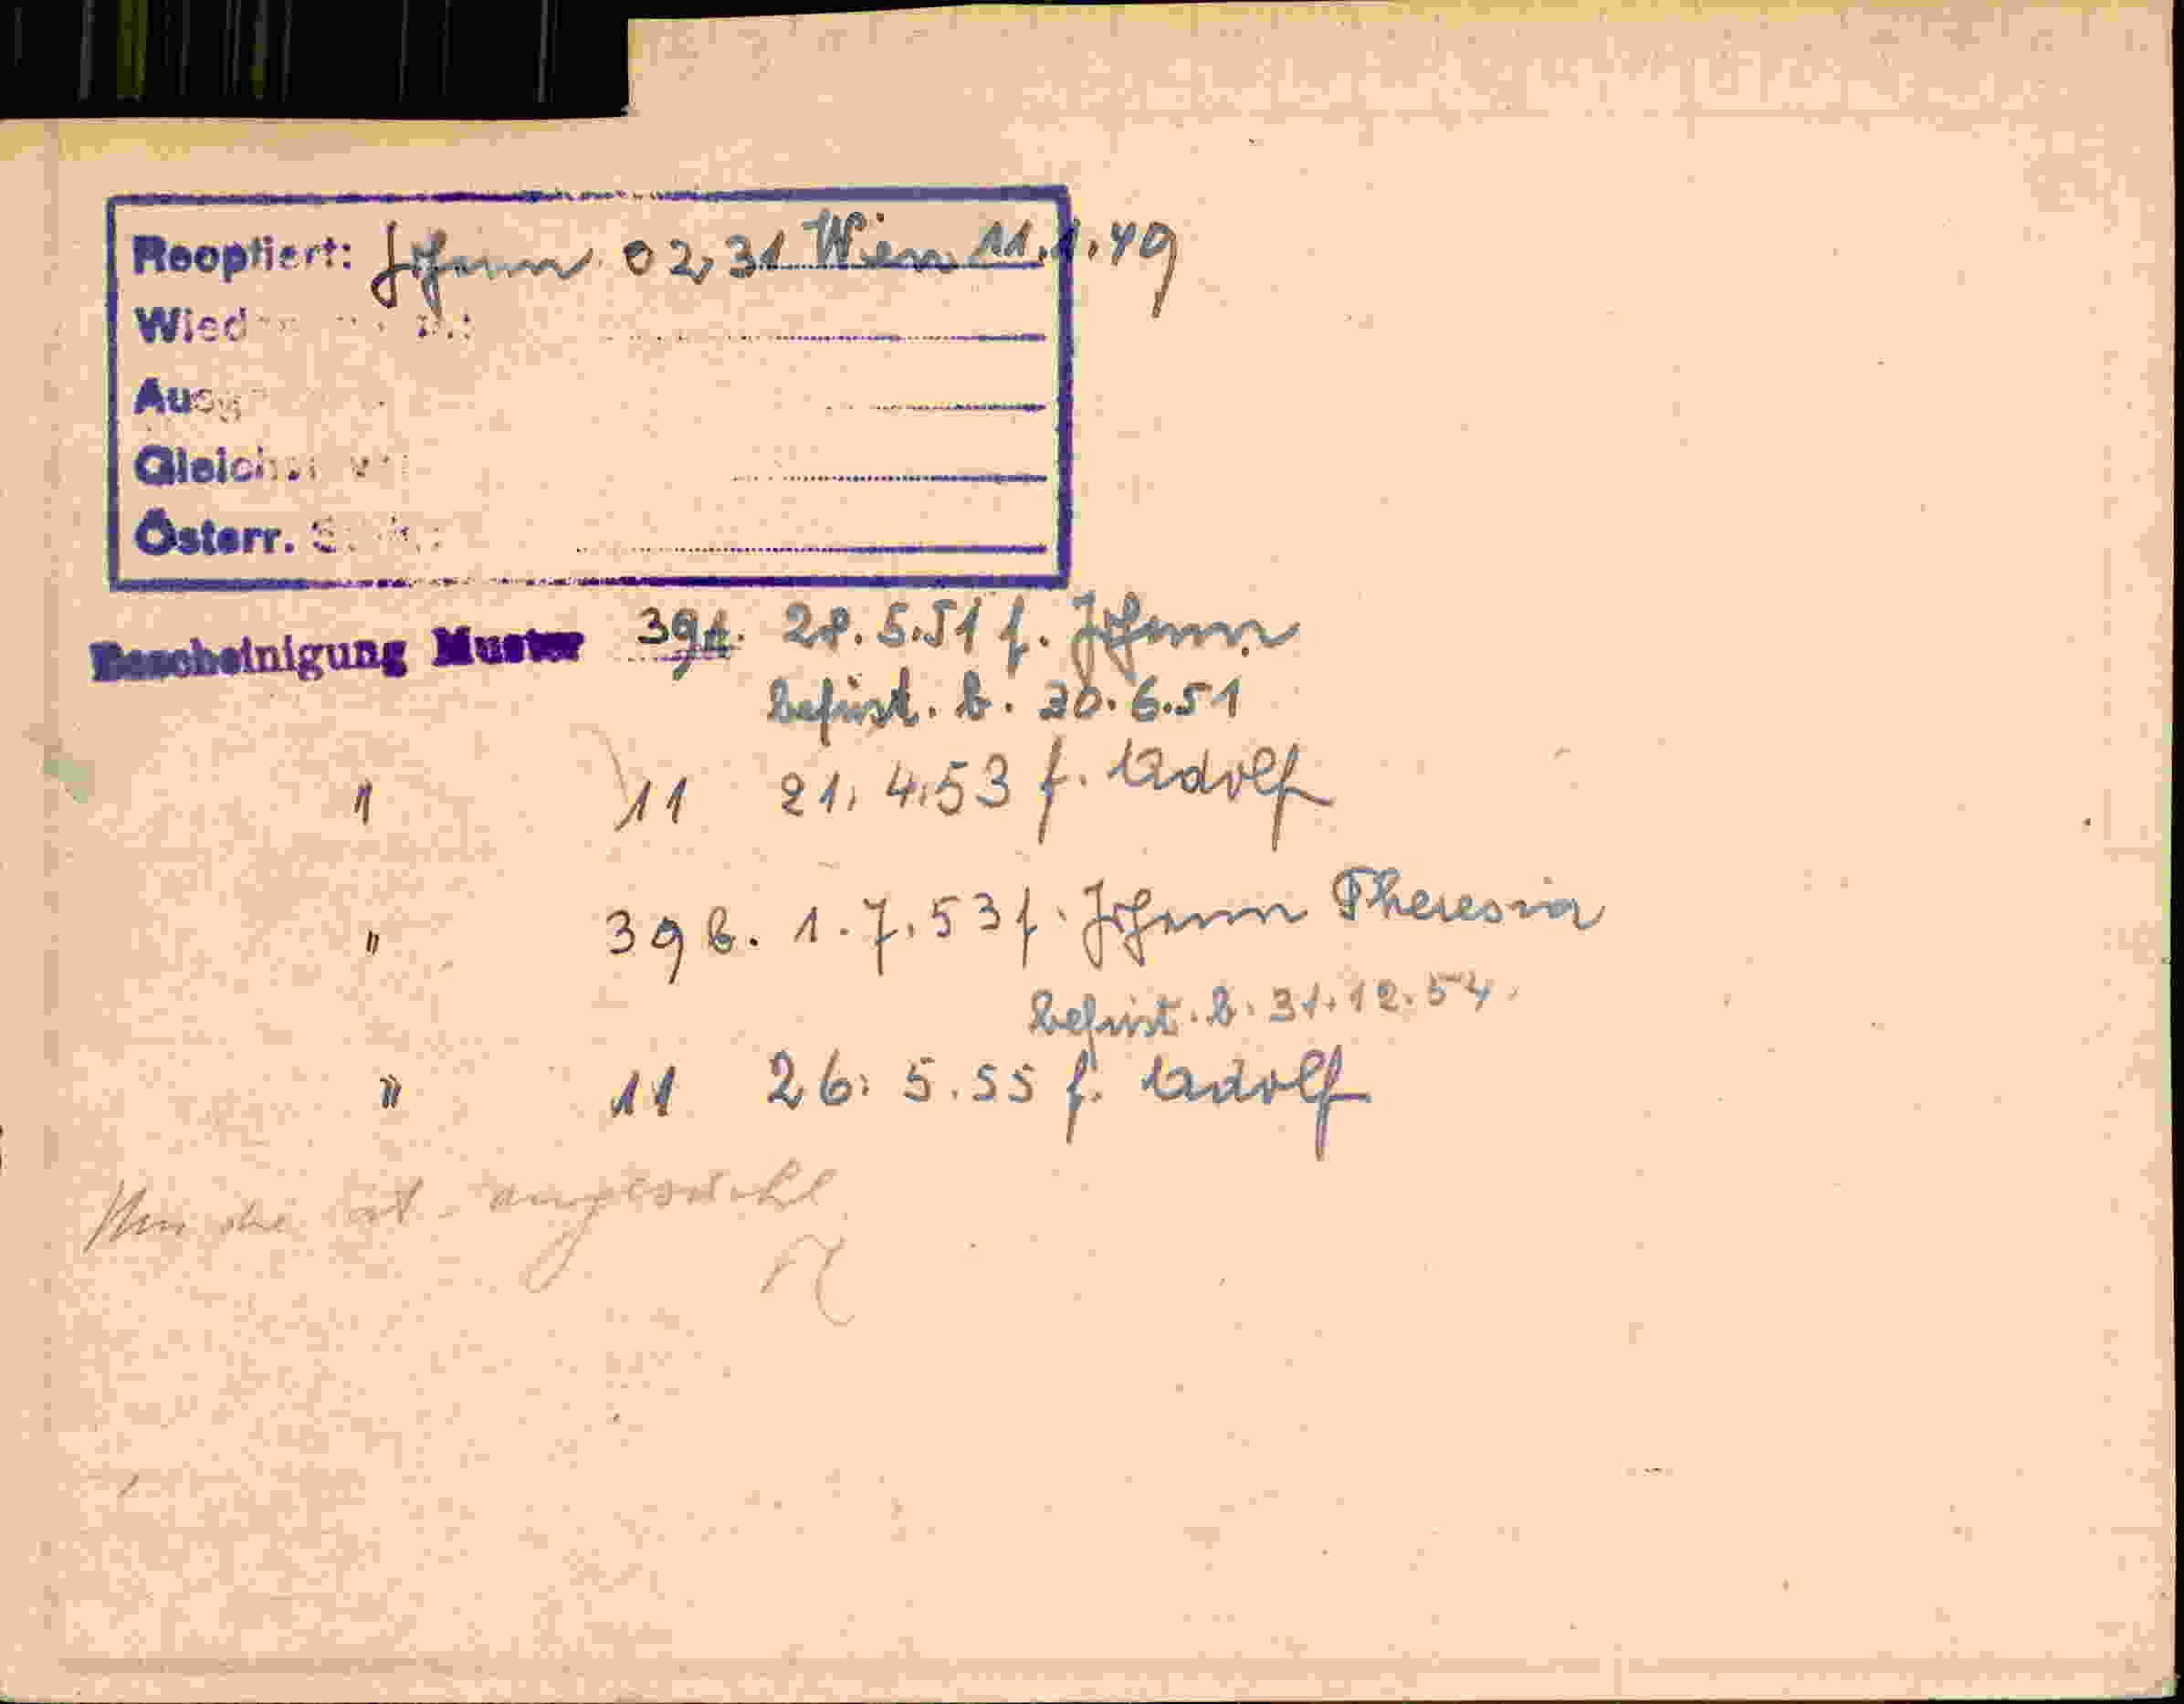 Reoptiert: Johann 02,31 Wien 11.1.49
Wied
Ausw
Gleich
Österr.
Bescheinigung Muster 39A. 28.5.51 f. Johann
befrist. b. 30.6.51
" 11 21.4.53 f. Adolf
" 39 b. 1.7.53 f. Johann Theresia
befrist. b. 31.12.54.
" 11 26.5.55 f. Adolf
ist